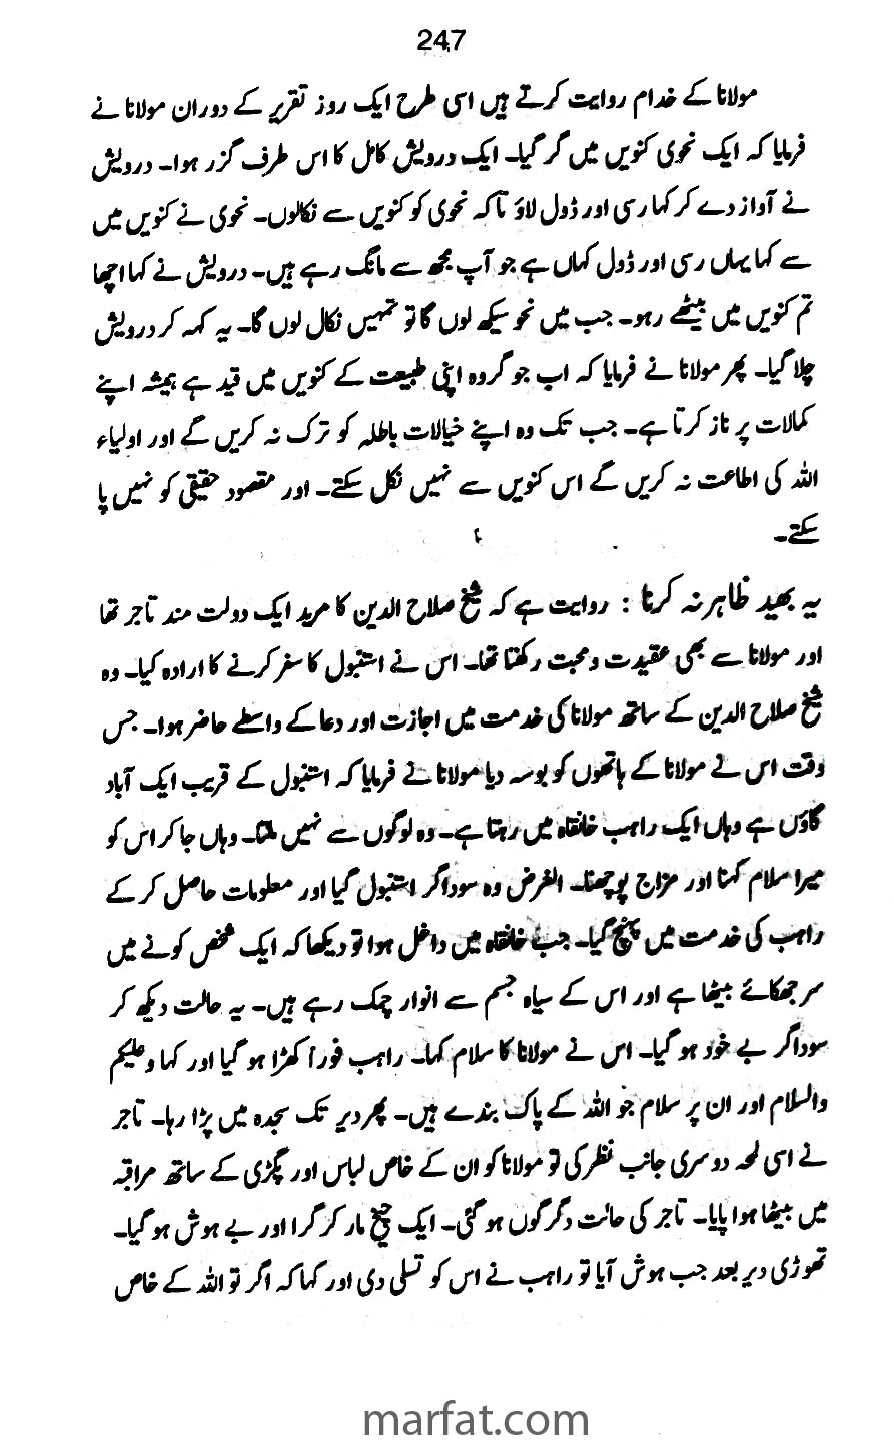 247
مولانا کے خدام روایت کرتے ہیں اسی طرح ایک روز تقریر کے دوران مولانا نے
فرمایا کہ ایک نحوی کنویں میں گر گیا۔ ایک درویش کامل کا اس طرف گزر ہوا۔ درویش
نے آواز دے کر کہا رسی اور ڈول لاؤ تاکہ نحوی کو کنویں سے نکالوں۔ نحوی نے کنویں میں
سے کہا یہاں رسی اور ڈول کہاں ہے جو آپ مجھ سے مانگ رہے ہیں۔ درویش نے کہا اچھا
تم کنویں میں بیٹھے رہو۔ جب میں نحو سیکھ لوں گا تو تمہیں نکال لوں گا۔ یہ کہہ کر درویش
چلا گیا۔ پھر مولانا نے فرمایا کہ اب جو گروہ اپنی طبیعت کے کنویں میں قید ہے ہمیشہ اپنے
کمالات پر ناز کرتا ہے۔ جب تک وہ اپنے خیالات باطلہ کو ترک نہ کریں گے اور اولیاء
اللہ کی اطاعت نہ کریں گے اس کنویں سے نہیں نکل سکتے۔ اور مقصود حقیقی کو نہیں پا
سکتے۔
یہ بھید ظاہر نہ کرنا : روایت ہے کہ شیخ صلاح الدین کا مرید ایک دولت مند تاجر تھا
اور مولانا سے بھی عقیدت و محبت رکھتا تھا۔ اس نے استنبول کا سفر کرنے کا ارادہ کیا۔ وہ
شیخ صلاح الدین کے ساتھ مولانا کی خدمت میں اجازت اور دعا کے واسطے حاضر ہوا۔ جس
وقت اس نے مولانا کے ہاتھوں کو بوسہ دیا مولانا نے فرمایا کہ استنبول کے قریب ایک آباد
گاؤں ہے وہاں ایک راہب خانقاہ میں رہتا ہے۔ وہ لوگوں سے نہیں ملتا۔ وہاں جا کر اس کو
میرا سلام کہنا اور مزاج پوچھنا۔ الغرض وہ سوداگر استنبول گیا اور معلومات حاصل کر کے
راہب کی خدمت میں پہنچ گیا۔ جب خانقاہ میں داخل ہوا تو دیکھا کہ ایک شخص کونے میں
سر جھکائے بیٹھا ہے اور اس کے سیاہ جسم سے انوار چمک رہے ہیں۔ یہ حالت دیکھ کر
سوداگر بے خود ہو گیا۔ اس نے مولانا کا سلام کہا۔ راہب فوراً کھڑا ہو گیا اور کہا وعلیکم
والسلام اور ان پر سلام جو اللہ کے پاک بندے ہیں۔ پھر دیر تک سجدہ میں پڑا رہا۔ تاجر
نے اسی لمحہ دوسری جانب نظر کی تو مولانا کو ان کے خاص لباس اور پگڑی کے ساتھ مراقبہ
میں بیٹھا ہوا پایا۔ تاجر کی حالت دگرگوں ہو گئی۔ ایک چیخ مار کر گرا اور بے ہوش ہو گیا۔
تھوڑی دیر بعد جب ہوش آیا تو راہب نے اس کو تسلی دی اور کہا کہ اگر تو اللہ کے خاص
marfat.com